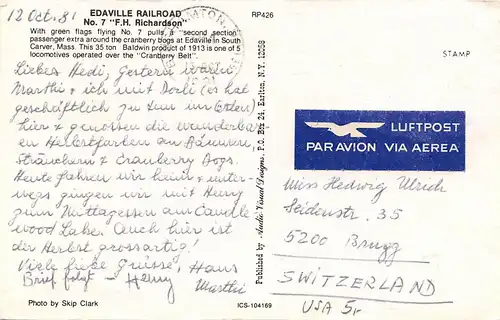 12 Oct. 81
EDAVILLE RAILROAD
No. 7 "F.H. Richardson"
With green flags flying No. 7 pulls a "second section"
passenger extra around the cranberry bogs at Edaville in South
Carver, Mass. This 35 ton Baldwin product of 1913 is one of 5
locomotives operated over the "Cranberry Belt".
Liebes Hedi, Gestern waren
Marthi + ich mit Dorli (es hat
geschäftlich zu tun im Osten)
hier + genossen die wunderbar-
en Herbstfarben an Bäumen,
Sträuchern & Cranberry Bogs.
Heute fahren wir heim + unter-
wegs gingen wir mit Henry
zum Mittagessen am Candle
wood Lake. Auch hier ist
der Herbst grossartig!
Viele liebe Grüsse, Hans
Brief folgt – Henry Marthi
Photo by Skip Clark
ICS-104169
Published by Audio-Visual Designs, P.O. Box 24, Earlton, N.Y. 12058
RP426
STAMP
LUFTPOST
PAR AVION VIA AEREA
Miss Hedwig Ulrich
Seidenstr. 35
5200 Brugg
SWITZERLAND
USA 5r